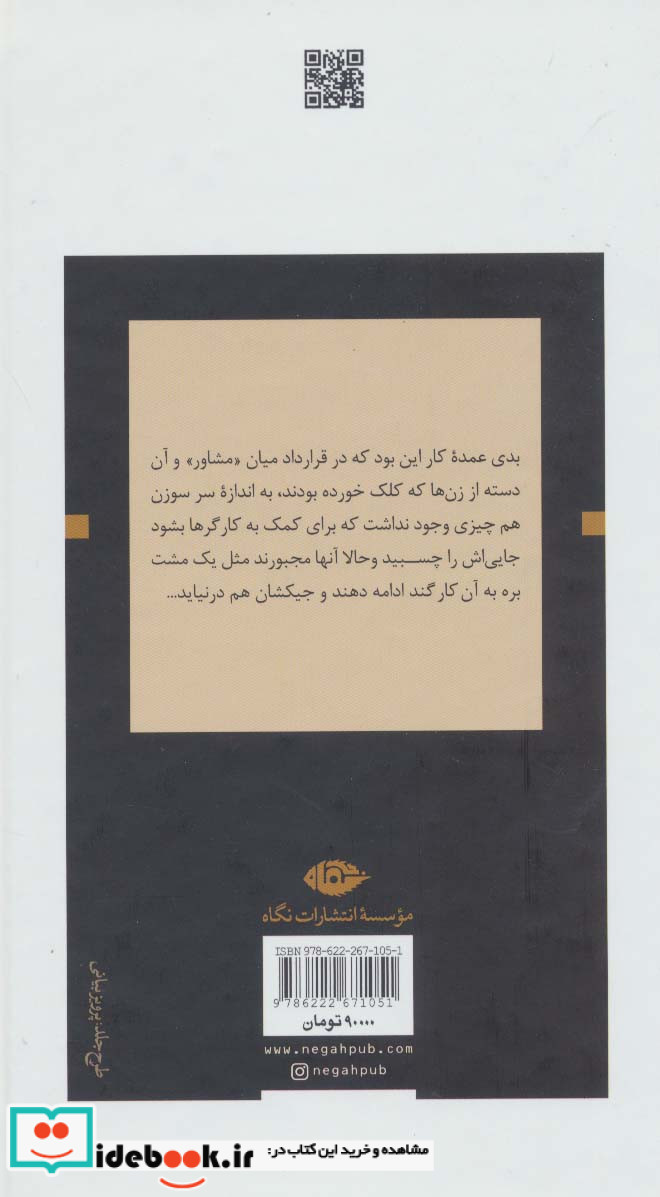 بدی عمدۀ کار این بود که در قرارداد میان «مشاور» و آن
دسته از زن‌ها که کلک خورده بودند، به اندازۀ سر سوزن
هم چیزی وجود نداشت که برای کمک به کارگرها بشود
جایی‌اش را چسبید وحالا آنها مجبورند مثل یک مشت
بره به آن کار گند ادامه دهند و جیکشان هم درنیاید...
نگاه
مؤسسۀ انتشارات نگاه
ISBN 978-622-267-105-1
9 786222 671051
۹۰۰۰۰ تومان
www.negahpub.com
negahpub
طرح جلد: پرویز بیانی
مشاهده و خرید این کتاب در:
idebook.ir